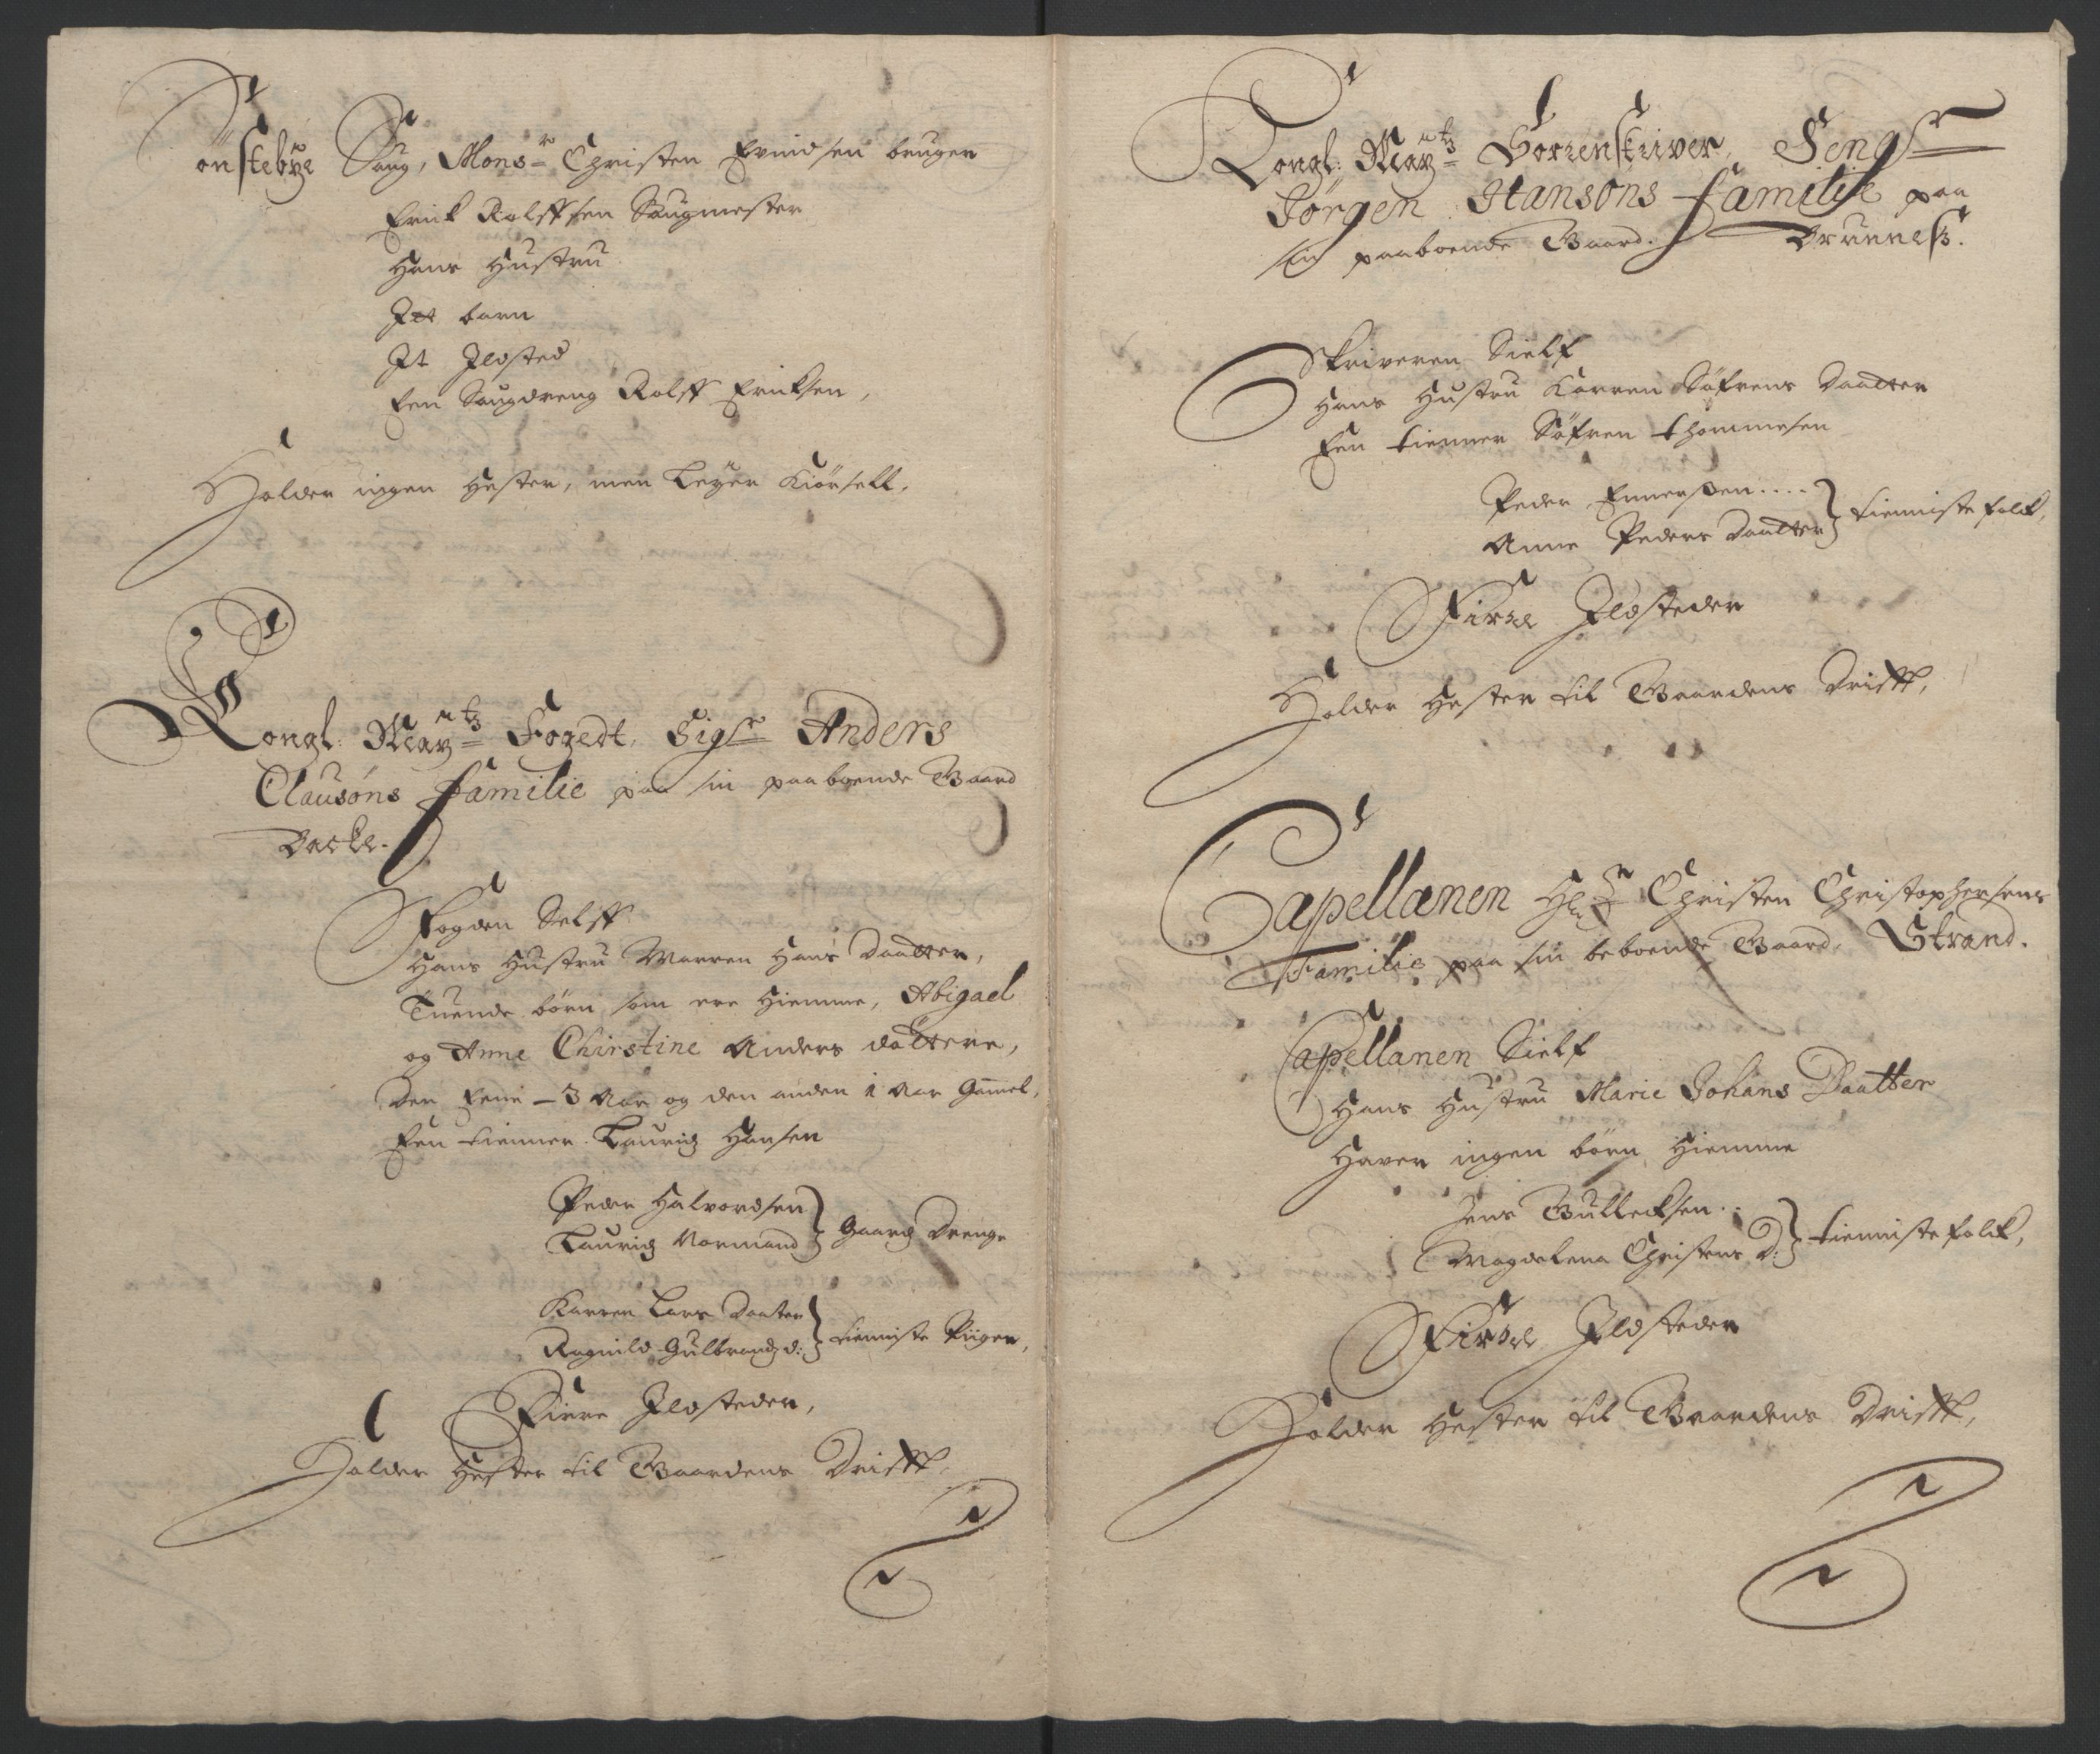 Tönstebÿe Saug, Mons:r Christen Evindsen bruger
Erick Rolffsen Saugmester
Hans Hustru
Jtt barn
Jt Jldsted
Een Saugdreng Rolff Ericksen,
Holder ingen Hester, men Leyer Kiörsell.
Kongl: May:tz Fogedt, Sig:r Anders
Clausøns Familie paa sin paaboende Gaard
Backe.
Fogden Selff
Hans Hustru Marren Hans Daatter,
Tuende börn som ere Hiemme, Abigael
og Anne Chirstine Anders döttre,
Den Eene - 3 Aar og den anden 1 Aar Gamel,
Een tienner Lauridz Hansen
Peder Halvordsen
Lauridz Normand } Gaardz Drenge
Karren Lars Daater
Ragnild Gulbrandz d: } tienniste Piiger,
Fiirre Jldsteder,
Holder Hester til Gaardens Drifft,
Kongl: May:tz Sorrenskriver, Seng:r
Jörgen Hansøns Familie paa
sin paaboende Gaard. Brunneß.
Skriveren Sielf
Hans Hustru Karren Söfrens Daatter
Een tienner Söfren Thommesen
Peder Ennerßen....
Anne Peders Daatter } tienniste folck,
Firre Jldsteder
Holder Hester til Gaardens Drifft,
Capellanen H:r Christen Christophersens
Familie paa sin beboende Gaard, Strand.
Capellanen Sielf
Hans Hustru Marie Johans Daatter
Haver ingen börn Hiemme
Jens Gullecksen..
Magdalena Christens D: } tienniste folck,
Firre Jldsteder
Holder Hester til Gaardens Drifft,